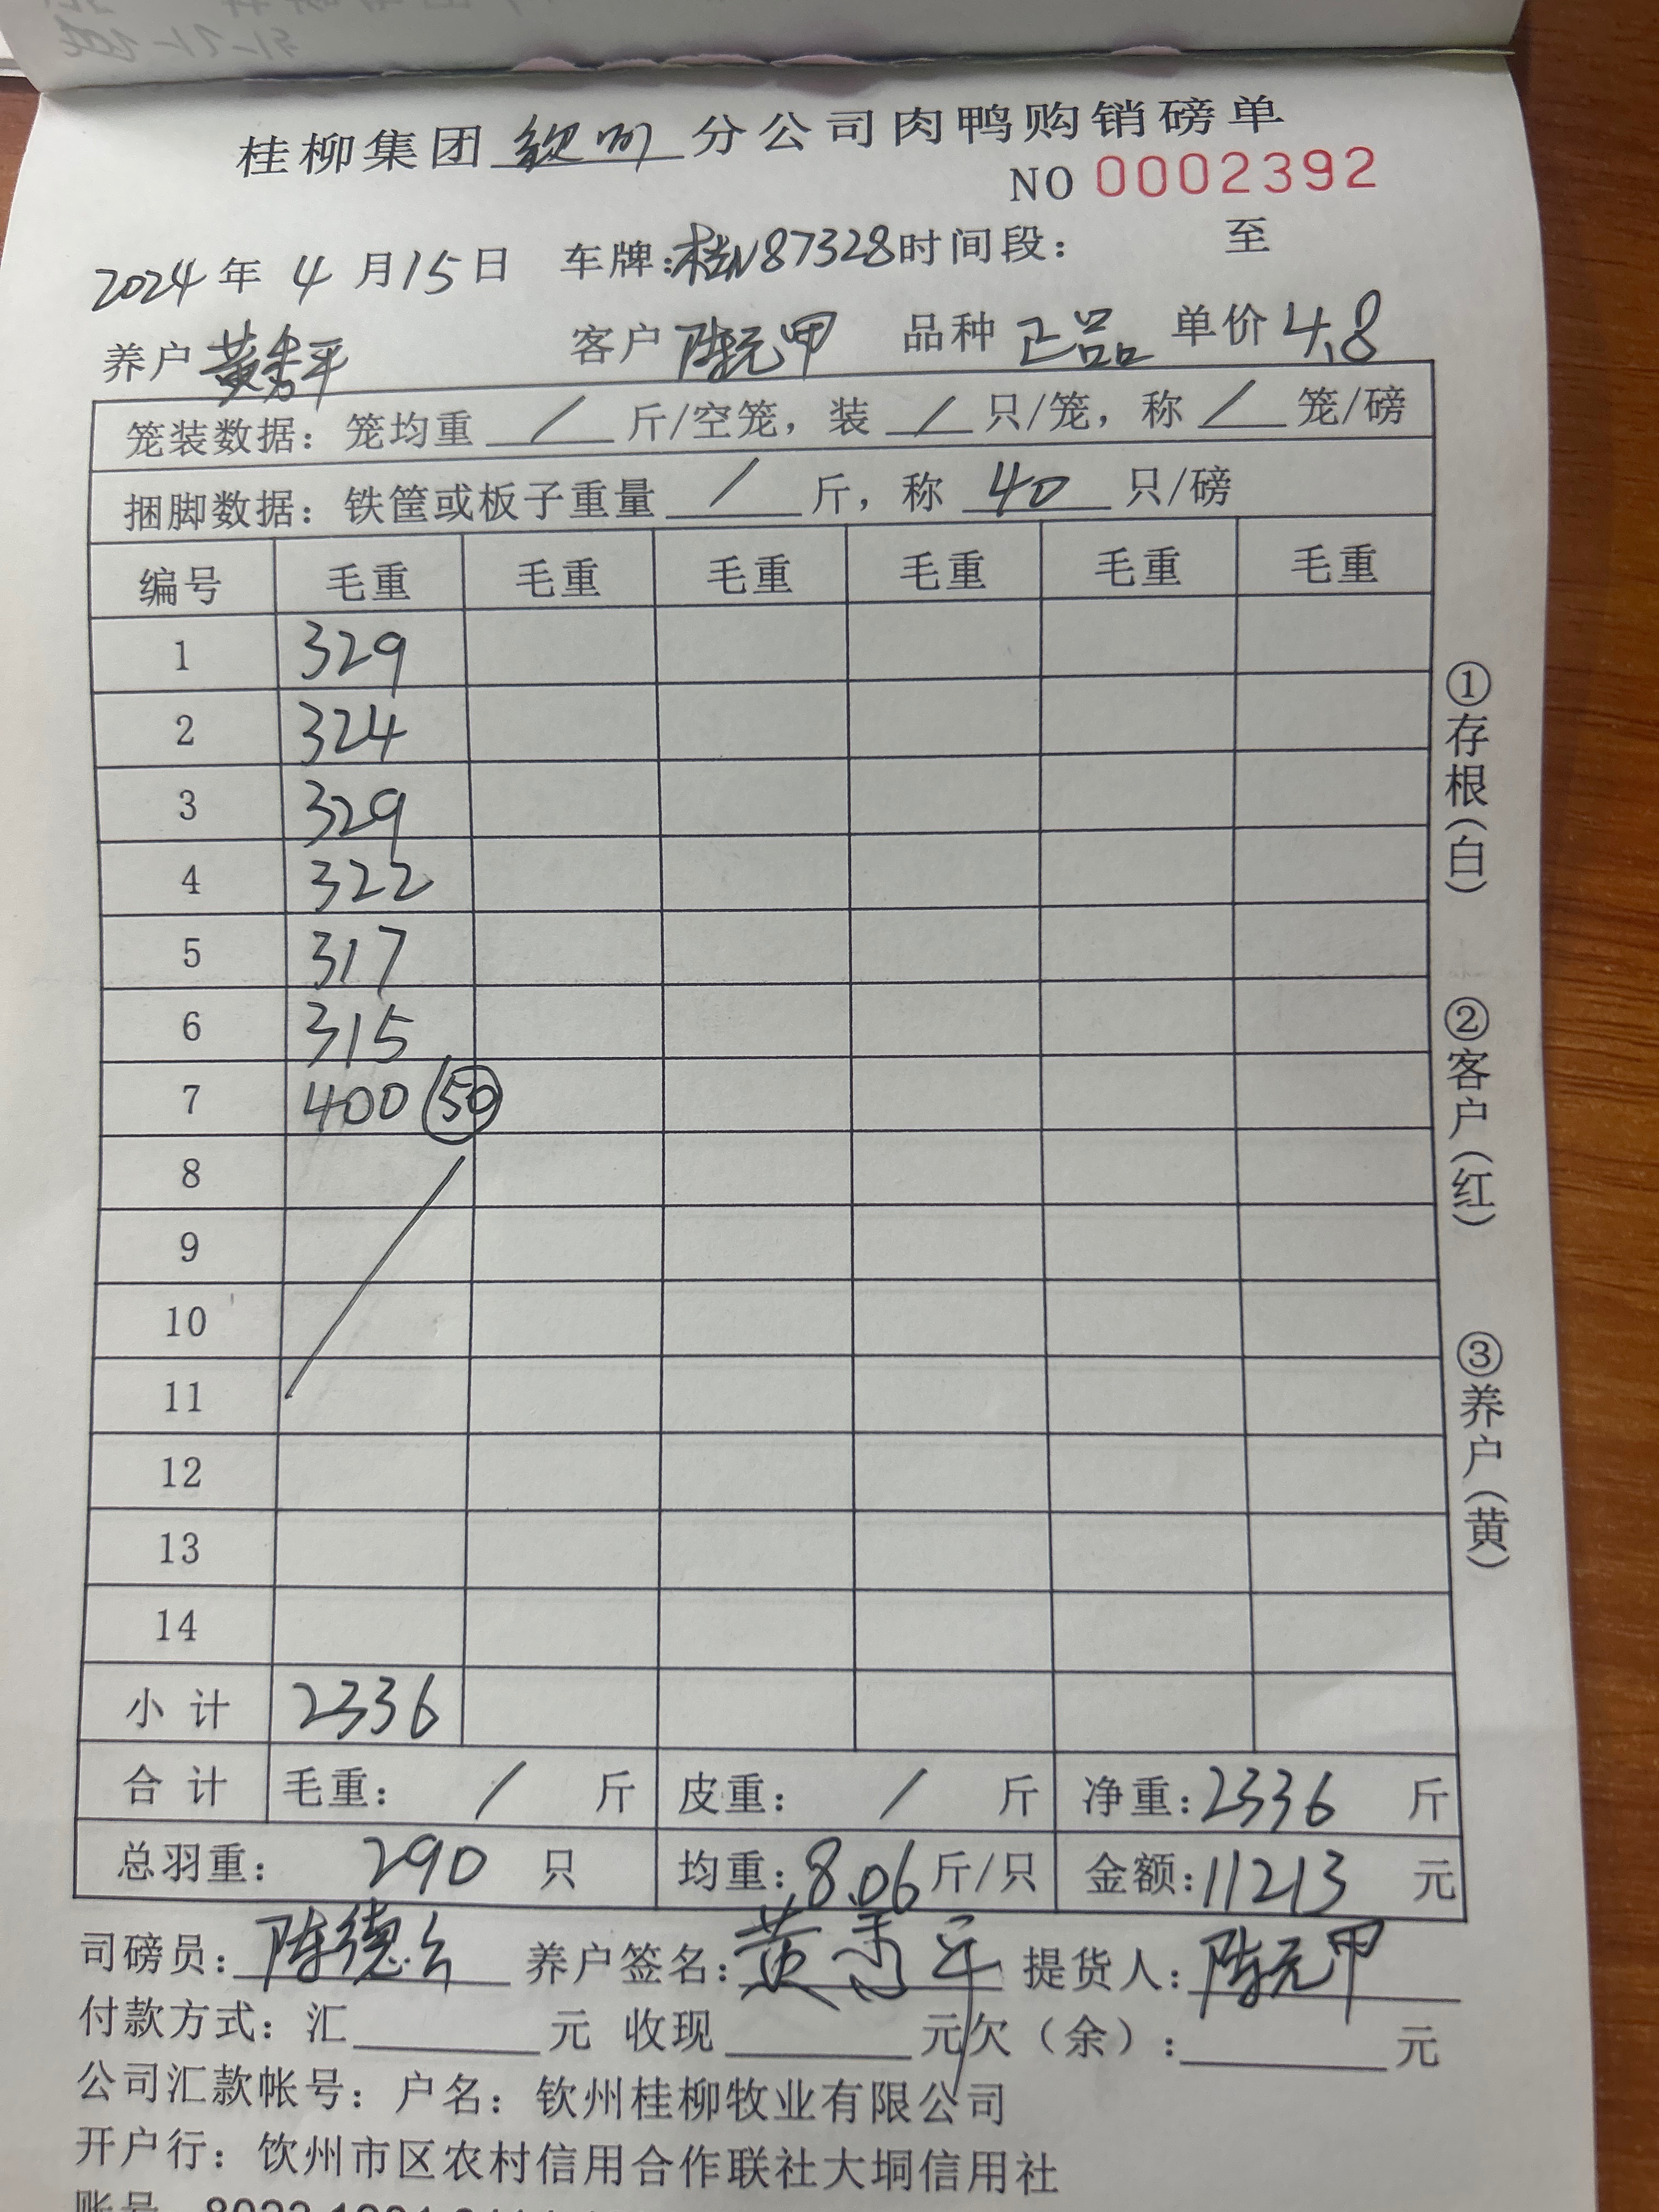 桂柳集团钦州分公司肉鸭购销磅单
NO 0002392
2024年4月15日 车牌:桂N87328时间段: 至
养户黄秀平 客户陈元甲 品种正品 单价4.8
笼装数据:笼均重/斤/空笼,装/只/笼,称/笼/磅
捆脚数据:铁筐或板子重量/斤,称40只/磅
编号 毛重 毛重 毛重 毛重 毛重 毛重
1 329
2 324
3 329
4 322
5 317
6 315
7 400 50
8
9
10
11
12
13
14
小计 2336
合计 毛重: / 斤 皮重: / 斤 净重:2336 斤
总羽重: 290 只 均重:8.06斤/只 金额:11213 元
司磅员:陈德 养户签名:黄秀平 提货人:陈元甲
付款方式:汇 元 收现 元欠(余): 元
公司汇款帐号:户名:钦州桂柳牧业有限公司
开户行:饮州市区农村信用合作联社大垌信用社
账号
①存根(白)
②客户(红)
③养户(黄)